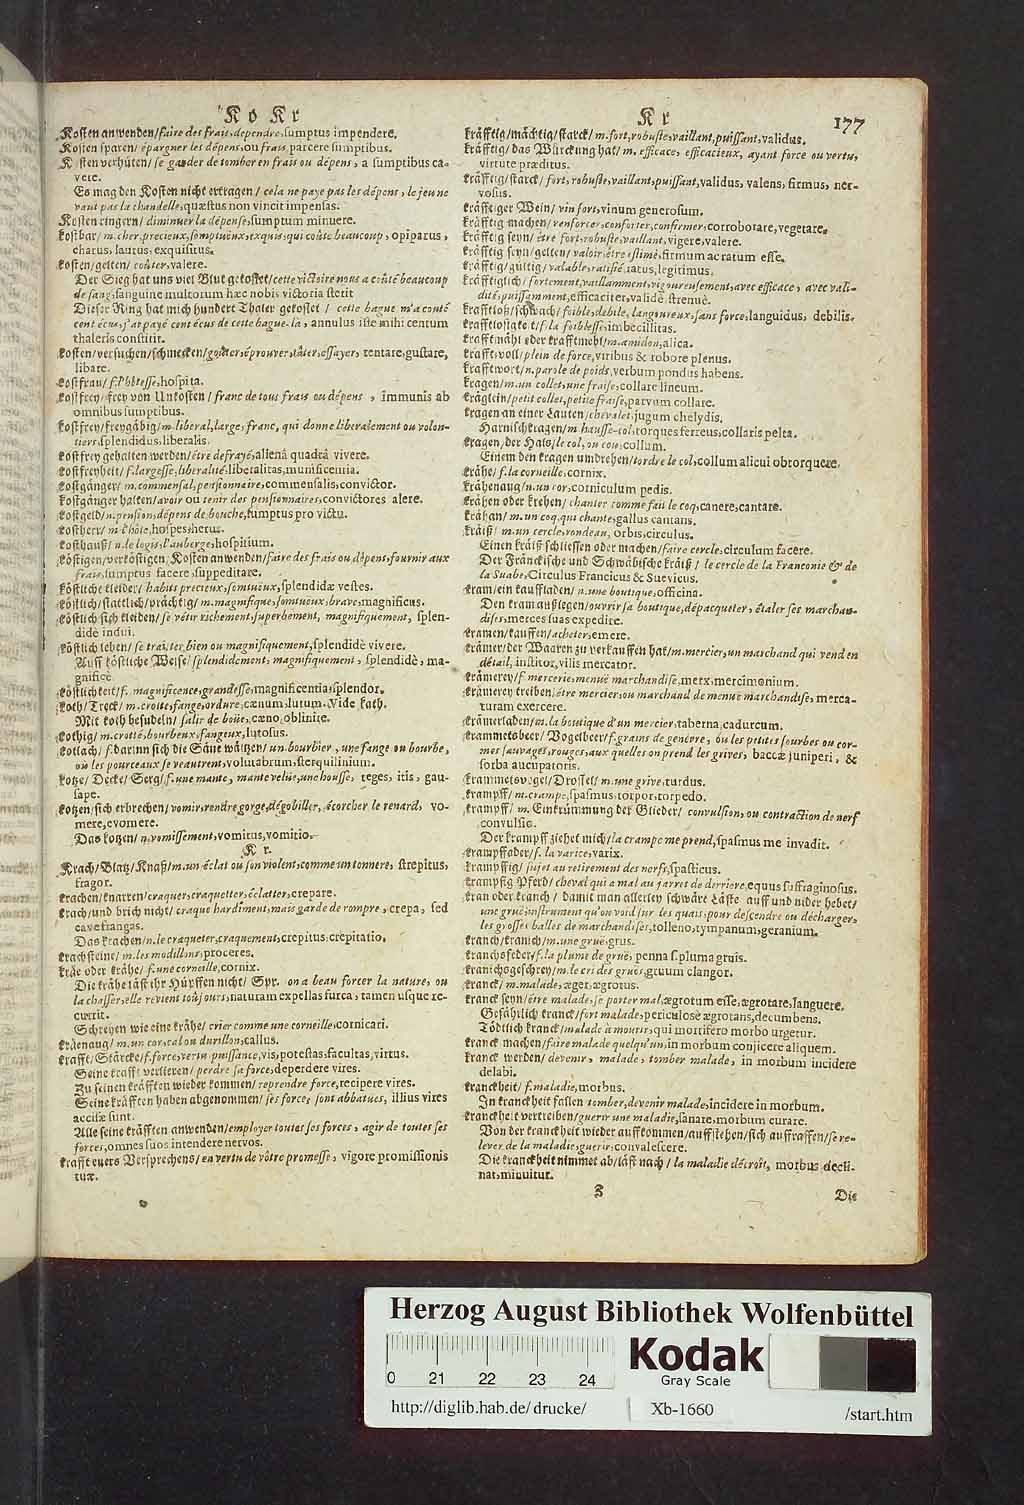 Ko Kr
Kosten anwenden/ faire des frais, dependre, sumptus impendere.
Kosten sparen/ épargner les dépens, ou frais, parcere sumptibus.
K sten verhüten/ se garder de tomber en frais ou dépens, a sumptibus ca-
vere.
Es mag den Kosten nicht ertragen/ cela ne paye pas les dépens, le jeu ne
vaut pas la chandelle, quæstus non vincit impensas.
Kosten ringern/ diminuer la dépense, sumptum minuere.
kostbar/ m. cher, precieux, somptueux, exquis, qui coûte beaucoup, opiparus,
charus, lautus, exquisitus.
kosten/ gelten/ coûter, valere.
Der Sieg hat uns viel Blut gekostet/ cette victoire nous a coûté beaucoup
de sang, sanguine multorum hæc nobis victoria stetit
Dieser Ring hat mich hundert Thaler gekostet/ cette bague m'a couté
cent écus, j'ay payé cent écus de cette bague-la, annulus iste mihi centum
thaleris constitit.
kosten/ versuchen/ schmecken/ goûter, éprouver, tâter, essayer, tentare, gustare,
libare.
kostfrau/ f. l'hôtesse, hospita.
kostfrey/ frey von Unkosten/ franc de tous frais ou dépens, immunis ab
omnibus sumptibus.
kostfrey/ freygäbig/ m. liberal, large, franc, qui donne liberalement ou volon-
tiers, splendidus, liberalis.
kostfrey gehalten werden/ être defrayé, alienâ quadrâ vivere.
kostfreyheit/ f. largesse, liberalité, liberalitas, munificentia.
kostgänger/ m. commensal, pensionnaire, commensalis, convictor.
kostgänger halten/ avoir ou tenir des pensionnaires, convictores alere.
kostgeld/ n. pension, dépens de bouche, sumptus pro victu.
kostherr/ m l'hôte, hospes, herus.
kosthauß/ n. le logis, l'auberge, hospitium.
köstigen/ verköstigen/ Kosten anwenden/ faire des frais ou dépens, fournir aux
frais, sumptus facere, suppeditare.
köstliche kleider/ habits precieux, somtuëux, splendidæ vestes.
köstlich/ stattlich/ prächtig/ m. magnifique, somtuëux, brave, magnificus.
köstlich sich kleiden/ se vétir richement, superbement, magnifiquement, splen-
didè indui.
köstlich leben/ se traitter bien ou magnifiquement, splendidè vivere.
Auff köstliche Weise/ splendidement, magnifiquement, splendidè, ma-
gnificè.
köstlichkeit/ f. magnificence, grandesse, magnificentia, splendor.
koth/ Treck/ m. crotte, fange, ordure, cænum, lutum. Vide kath.
Mit koth besudeln/ salir de boüe, cæno oblinire.
kothig/ m. crotté, bourbeux, fangeux, lutosus.
kotlach/ f. darinn sich die Säue wältzen/ un bourbier, une fange ou bourbe,
où les pourceaux se veautrent, volutabrum, sterquilinium.
kotze/ Decke/ Serg/ f. une mante, mante veluë, une housse, teges, itis, gau-
sape.
kotzen/ sich erbrechen/ vomir, rendre gorge, dégobiller, écorcher le renard, vo-
mere, evomere.
Das kotzen/ n. vomissement, vomitus, vomitio.
K r.
Krach/ Blatz/ Knaß/ m. un éclat ou son violent, comme un tonnere, strepitus,
fragor.
krachen/ knarren/ craquer, craquetter, éclatter, crepare.
krach/ und brich nicht/ craque hardiment, mais garde de rompre, crepa, sed
cave frangas.
Das krachen/ n. le craqueter, craquement, crepitus, crepitatio.
krachsteine/ m. les modillons, proceres.
kräe oder krähe/ f. une corneille, cornix.
Die krähe läst ihr Hüpffen nicht/ Spr. on a beau forcer la nature, ou
la chasser, elle revient toûjours, naturam expellas furca, tamen usque re-
currit.
Schreyen wie eine krähe/ crier comme une corneille, cornicari.
kräenaug/ m. un cor, cal ou durillon, callus.
krafft/ Stärcke/ f. force, vertu, puissance, vis, potestas, facultas, virtus.
Seine krafft verlieren/ perdre sa force, deperdere vires.
Zu seinen kräfften wieder kommen/ reprendre force, recipere vires.
Seine kräfften haben abgenommen/ ses forces sont abbatues, illius vires
accisæ sunt.
Alle seine kräfften anwenden/ employer toutes ses forces, agir de toutes ses
forces, omnes suos intendere nervos.
krafft euers Versprechens/ en vertu de vôtre promesse, vigore promissionis
tuæ.
Kr 177
kräfftig/ mächtig/ starck/ m. fort, robuste, vaillant, puissant, validus.
kräfftig/ das Würckung hat/ m. efficace, efficacieux, ayant force ou vertu,
virtute præditus.
kräfftig/ starck/ fort, robuste, vaillant, puissant, validus, valens, firmus, ner-
vosus.
kräfftiger Wein/ vin fort, vinum generosum.
kräfftig machen/ renforcer, conforter, confirmer, corroborare, vegetare.
kräfftig seyn/ être fort, robuste, vaillant, vigere, valere.
kräfftig seyn/ gelten/ valoir, être estimé, firmum ac ratum esse.
kräfftig/ gültig/ valable, ratifié, ratus, legitimus.
kräfftiglich/ fortement, vaillamment, vigoureusement, avec efficace, avec vali-
dité, puissamment, efficaciter, validè, strenuè.
krafftloß/ schwach/ foible, debile, langoureux, sans force, languidus, debilis.
krafftlosigkeit/ f. la foiblesse, imbecillitas.
krafftmähl oder krafftmehl/ m. amidon, alica.
krafft voll/ plein de force, viribus & robore plenus.
krafftwort/ n. parole de poids, verbum pondus habens.
kragen/ m. un collet, une fraise, collare lineum.
kräglein/ petit collet, petite fraise, parvum collare.
kragen an einer Lauten/ chevalet, jugum chelydis.
Harnischkragen/ m hausse-col, torques ferreus, collaris pelta.
kragen/ der Hals/ le col, ou cou, collum.
Einem den kragen umdrehen/ tordre le col, collum alicui obtorquere.
krähe/ f. la corneille, cornix.
krähenaug/ n. un cor, corniculum pedis.
krähen oder krehen/ chanter comme fait le coq, canere, cantare.
krähan/ m. un coq, qui chante, gallus cantans.
kräiß/ m. un cercle, rondeau, orbis, circulus.
Einen kräiß schliessen oder machen/ faire cercle, circulum facere.
Der Fränckische und Schwäbische kräiß/ le cercle de la Franconie & de
la Suabe, Circulus Francicus & Suevicus.
kram/ ein kauffladen/ n. une boutique, officina.
Den kram außlegen/ ouvrir sa boutique, dépacqueter, étaler ses marchan-
dises, merces suas expedire.
kramen/ kauffen/ acheter, emere.
krämer/ der Waaren zu verkauffen hat/ m. mercier, un marchand qui vend en
détail, institor, vilis mercator.
krämerey/ f. mercerie, menuë marchandise, merx, mercimonium.
krämerey treiben/ être mercier, ou marchand de menuë marchandise, merca-
turam exercere.
krämerladen/ m. la boutique d'un mercier, taberna, cadurcum.
krammetsbeer/ Vogelbeer/ f. grains de genévre, ou les petites sourbes ou cor-
mes sauvages, rouges, aux quelles on prend les grives, baccæ juniperi, &
sorba aucupatoris.
krammetsvogel/ Drossel/ m. une grive, turdus.
krampff/ m. crampe, spasmus, torpor, torpedo.
krampff/ m. Einkrümmung der Glieder/ convulsion, ou contraction de nerf
convulsio.
Der krampff ziehet mich/ la crampe me prend, spasmus me invadit.
krampffader/ f. la varice, varix.
krampffig/ sujet au retirement des nerfs, spasticus.
krampfig Pferd/ cheval qui a mal au jarret de derriere, equus suffraginosus.
kran oder kranch/ damit man allerley schwäre Läste auff und nider hebet/
une gruë, instrument qu'on void sur les quais, pour descendre ou décharger,
les grosses balles de marchandises, tolleno, tympanum, geranium.
kranch/ kranich/ m. une gruë, grus.
kranchsfeder/ f. la plume de gruë, penna s. pluma gruis.
kranichsgeschrey/ m. le cri des gruës, gruum clangor.
kranck/ m. malade, æger, ægrotus.
kranck seyn/ être malade, se porter mal, ægrotum esse, ægrotare, languere.
Gefährlich kranck/ fort malade, periculosè ægrotans, decumbens.
Tödtlich kranck/ malade à mourir, qui mortifero morbo urgetur.
kranck machen/ faire malade quelqu'un, in morbum conjicere aliquem.
kranck werden/ devenir, malade, tomber malade, in morbum incidere
delabi.
kranckheit/ f. maladie, morbus.
In kranckheit fallen/ tomber, devenir malade, incidere in morbum.
kranckheit vertreiben/ guerir une maladie, sanare, morbum curare.
Von der kranckheit wieder auffkommen/ auffstehen/ sich auffraffen/ se re-
lever de la maladie, guerir, convalescere.
Die kranckheit nimmet ab/ läst nach/ la maladie décroît, morbus decli-
nat, minuitur.
Z Die
Herzog August Bibliothek Wolfenbüttel
0 21 22 23 24
Kodak
Gray Scale
http://diglib.hab.de/drucke/ Xb-1660 /start.htm